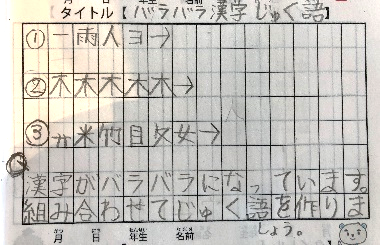 月 日 年生 名前
タイトル【バラバラ漢字じゅく語】
①一雨人ヨ→
②木木木木木→
③廾米竹目攵女→
漢字がバラバラになっています。
組み合わせてじゅく語を作りま
しょう。
月 日 年生 名前